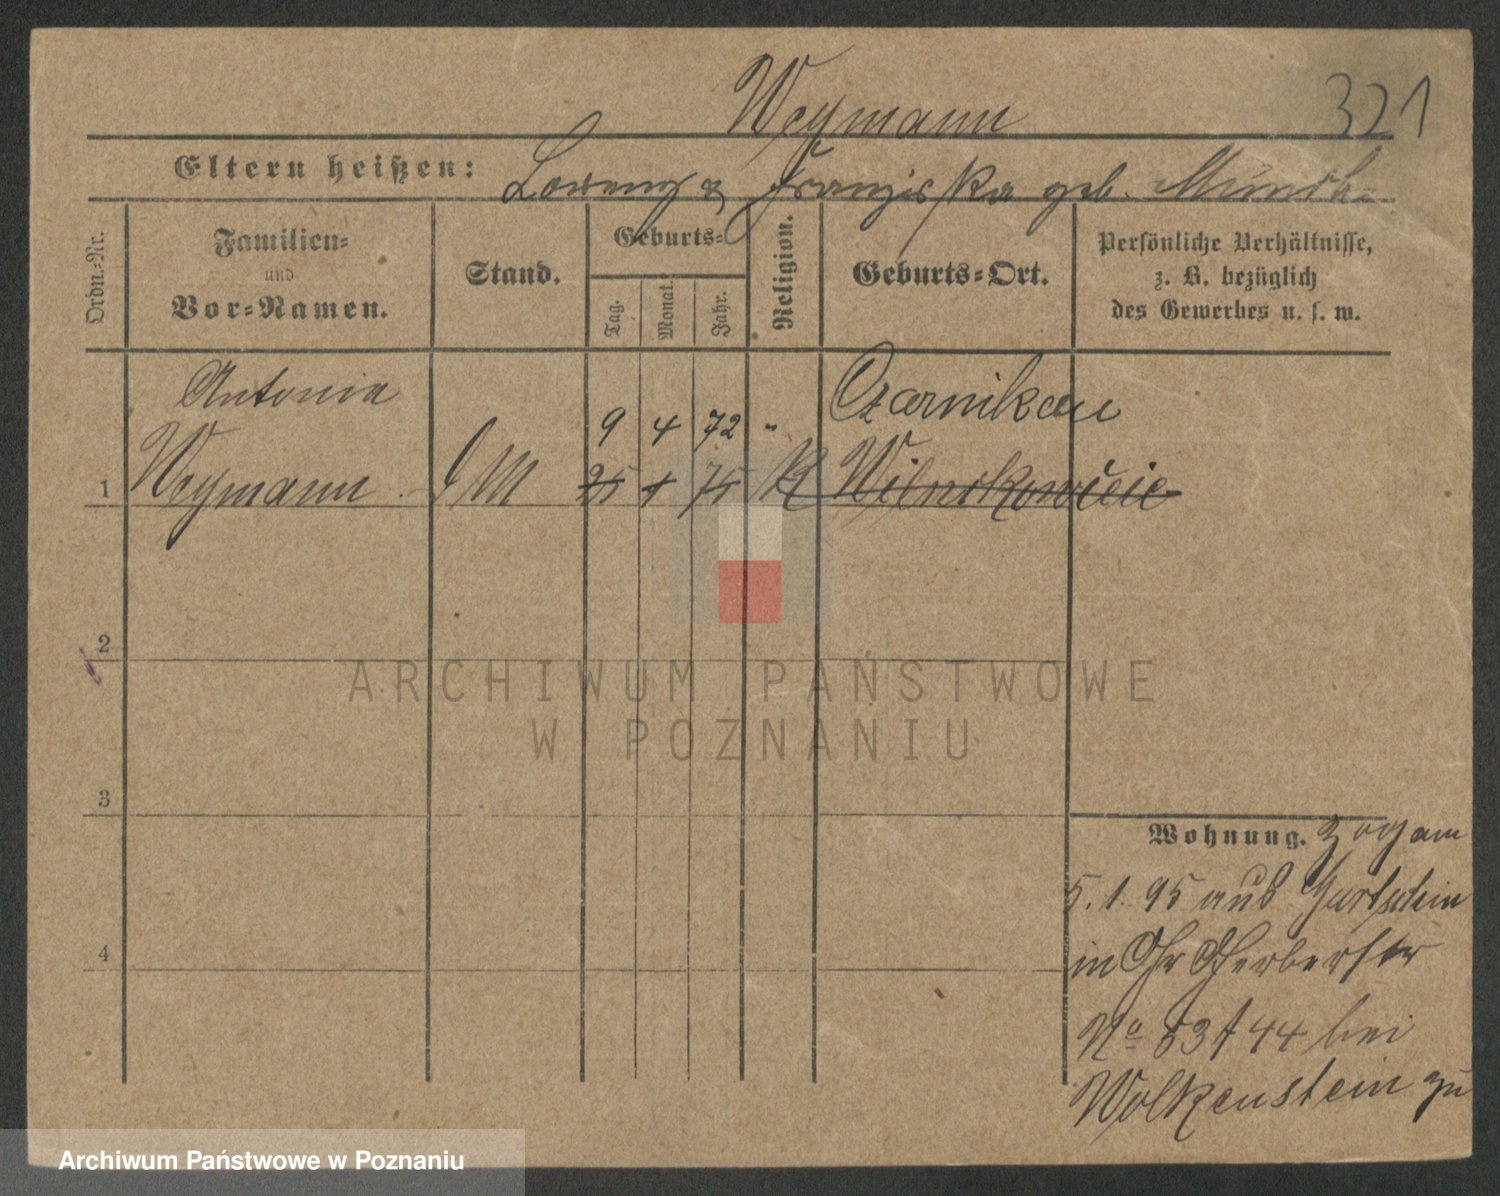 Weymann 321
Eltern heißen: Lorenz & Franziska geb.
Ordn.-Nr.
Familien-
und
Vor-Namen.
Stand.
Geburts-
Tag.
Monat.
Jahr.
Religion.
Geburts-Ort.
Persönliche Verhältnisse,
z. B. bezüglich
des Gewerbes u. s. w.
Antonie
9 4 72 " Czarnikau
1 Weymann 25 1 75 K
2
ARCHIWUM PAŃSTWOWE
W POZNANIU
3
Wohnung. zog am
5. 1. 95 aus
in
No 44 bei
Wolkenstein zu
4
Archiwum Państwowe w Poznaniu